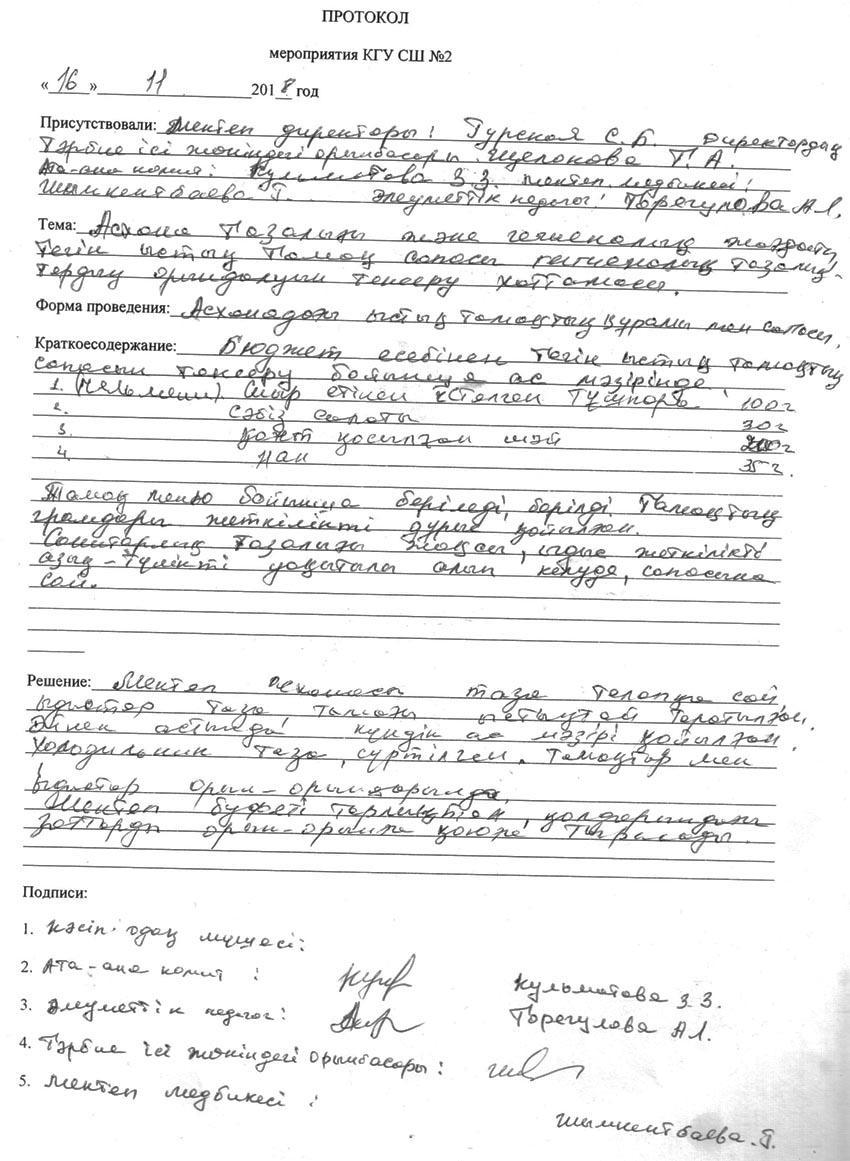 ПРОТОКОЛ
мероприятия КГУ СШ №2
«16» 11 2018 год
Присутствовали: Мектеп директоры: Гурская С.Б. Директордың
Тәрбие ісі жөніндегі орынбасары Щелокова Т.А.
Ата-ана комит: Кульматова З.З. мектеп медбикесі:
Шымкентбаева Г. Әлеуметтік педагог: Төрегулова А.Л.
Тема: Асхана тазалығы және гигиеналық
тегін ыстық тамақ сапасы тазалық-
тардың орындалуын тексеру хаттамасы.
Форма проведения: Асханадағы ыстық тамақтың құрамы мен сапасы.
Краткоесодержание: Бюджет есебінен тегін ыстық тамақтың
сапасын тексеру бойынша ас мәзірінде
1. (пельмени) Сиыр етінен істелген Тұшпара 100г
2. сәбіз салаты 30г
3. қант қосылған шәй 200г
4. нан 35г.
Тамақ меню бойынша беріледі, берілді. Тамақтың
грамдары жеткілікті дұрыс қойылған.
Санитарлық тазалығы жақсы, ыдыс жеткілікті
азық-түлікті уақытылы алып келуде, сапасына
сай.
Решение: Мектеп асханасы таза талапқа сай,
ыдыстар таза тамағы ыстықтай таратылған.
Әйнек астында күндік ас мәзірі қойылған.
Холодильник таза, сүртілген. Тамақтар мен
ыдыстар орын-орындарында.
Мектеп буфеті
заттарды орын-орнына қоюға тырысады.
Подписи:
1. Кәсіп.одақ мүшесі:
2. Ата-ана комит : Кульматова З.З.
3. Әлеуметтік педагог: Төрегулова А.Л.
4. Тәрбие ісі жөніндегі орынбасары:
5. Мектеп медбикесі :
Шымкентбаева.Г.